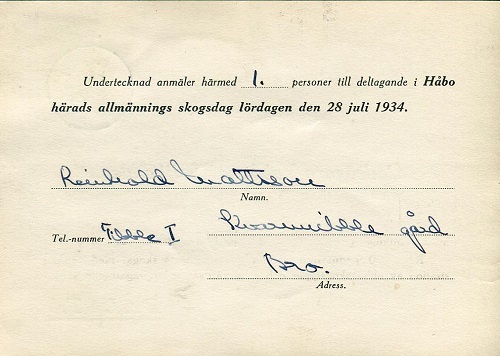 Undertecknad anmäler härmed 1. personer till deltagande i Håbo
härads allmännings skogsdag lördagen den 28 juli 1934.
Reinhold Mattsson
Namn.
Tel.-nummer Tibble 1 Kvarnnibble gård
Bro.
Adress.